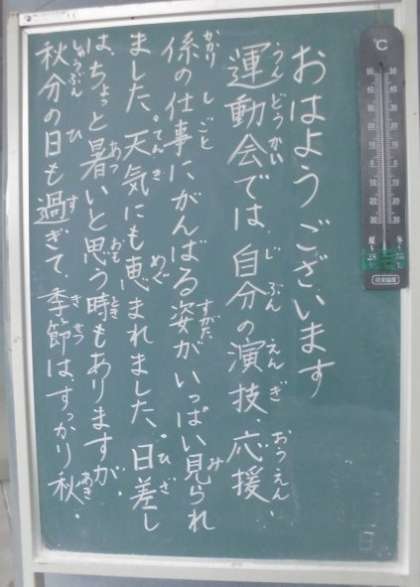 おはようございます
運動会では、自分の演技、応援、
係の仕事にがんばる姿がいっぱい見られ
ました。天気にも恵まれました。日差し
は、ちょっと暑いと思う時もありますが、
秋分の日も過ぎて、季節は、すっかり秋、
℃